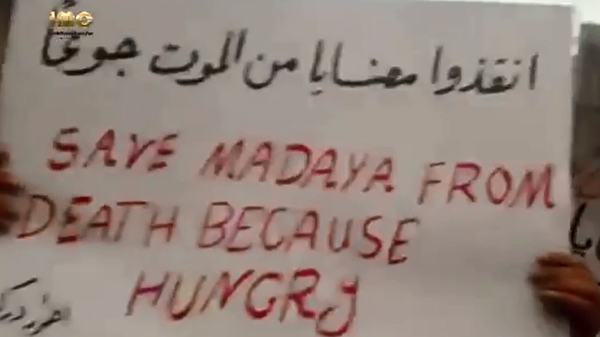 انقذوا مضايا من الموت جوعًا
SAVE MADAYA FROM
DEATH BECAUSE
HUNGRY